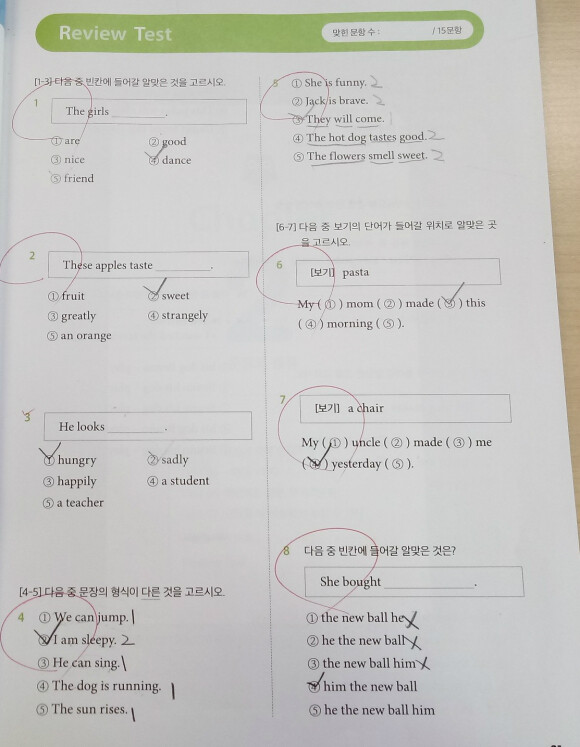 Review Test
맞힌 문항 수 : / 15문항
[1-3] 다음 중 빈칸에 들어갈 알맞은 것을 고르시오.
1
The girls ________.
① are ② good
③ nice ④ dance
⑤ friend
2
These apples taste ________.
① fruit ② sweet
③ greatly ④ strangely
⑤ an orange
3
He looks ________.
① hungry ② sadly
③ happily ④ a student
⑤ a teacher
[4-5] 다음 중 문장의 형식이 다른 것을 고르시오.
4 ① We can jump. 1
② I am sleepy. 2
③ He can sing. 1
④ The dog is running. 1
⑤ The sun rises. 1
5 ① She is funny. 2
② Jack is brave. 2
③ They will come. 1
④ The hot dog tastes good. 2
⑤ The flowers smell sweet. 2
[6-7] 다음 중 보기의 단어가 들어갈 위치로 알맞은 곳
을 고르시오.
6
[보기] pasta
My ( ① ) mom ( ② ) made ( ③ ) this
( ④ ) morning ( ⑤ ).
7
[보기] a chair
My ( ① ) uncle ( ② ) made ( ③ ) me
( ④ ) yesterday ( ⑤ ).
8 다음 중 빈칸에 들어갈 알맞은 것은?
She bought ________.
① the new ball he
② he the new ball
③ the new ball him
④ him the new ball
⑤ he the new ball him